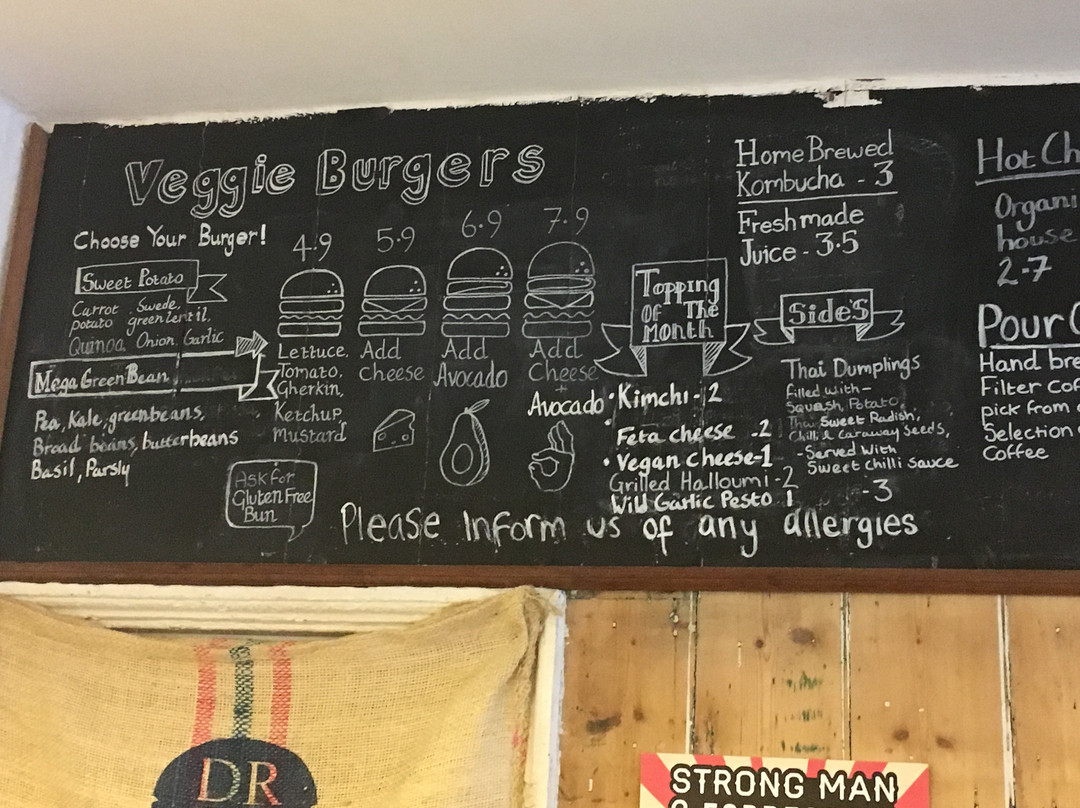 Veggie Burgers
Choose Your Burger!
Sweet Potato
Carrot, Swede,
potato green lentil,
Quinoa, Onion, Garlic
Mega Green Bean
Pea, Kale, greenbeans,
Broad beans, butterbeans
Basil, Parsly
Ask for
Gluten Free
Bun
4.9
Lettuce,
Tomato,
Gherkin,
Ketchup,
Mustard
5.9
Add
Cheese
6.9
Add
Avocado
7.9
Add
Cheese
+
Avocado
Topping
Of The
Month
• Kimchi - 2
• Feta cheese - 2
• Vegan cheese - 1
Grilled Halloumi - 2
Wild Garlic Pesto 1
Home Brewed
Kombucha - 3
Freshmade
Juice - 3.5
Side's
Thai Dumplings
filled with -
Squash, Potato,
Thai Sweet Radish,
Chilli & Caraway Seeds,
- Served With
Sweet Chilli Sauce
- 3
Hot Ch
Organi
house
2.7
Pour
Hand bre
Filter cof
pick from
Selection
Coffee
Please Inform us of any allergies
DR
STRONG MAN